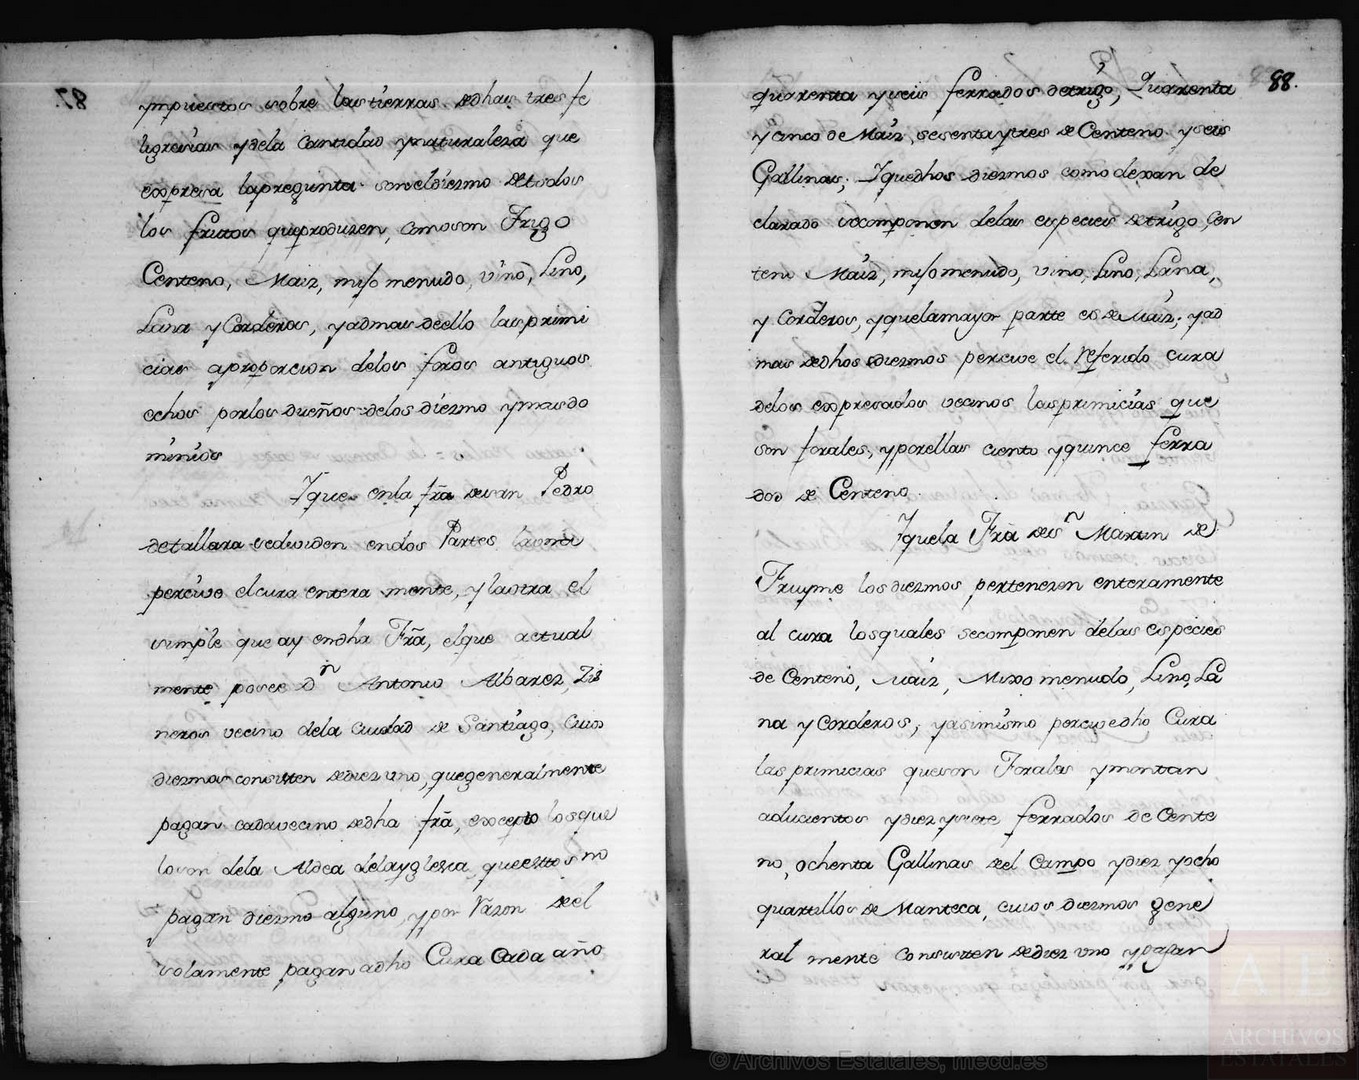 ympuestos sobre las tierras de dhas tres fe
ligresias y dela Cantidad y naturaleza que
expresa la pregunta son el diezmo de todos
los frutos que produzen, como son Trigo
Centeno, Maiz, mijo menudo, vino, Lino,
Lana y Corderos, y ad mas de ello las primi
cias a proporcion de los foros antiguos
echos por los dueños de los diezmo y mas do
minios
Y que en la fra de san Pedro
de tallara se dividen en dos Partes la una
percive el cura entera mente, y la otra el
simple que ay en dha Frã, el que actual
mente posee Dn Antonio Albarez, Zis
neros vecino dela Ciudad de Santiago, cuios
diezmos consisten de diez uno, que generalmente
pagan cada vecino de dha frã, excepto los que
lo son dela Aldea dela yglesia que estos no
pagan diezmo alguno, y por Razon de el
solamente pagan a dho Cura Cada año
88.
quarenta y seis ferrados de trigo, Quarenta
y cinco de Maiz, sesenta y tres de Centeno y seis
Gallinas; Y que dhos diezmos como dexan de
clarado se componen delas especies de trigo, Cen
teno Maiz, mijo menudo, vino, Lino, Lana,
y Corderos, y que la mayor parte es de Maiz; y ad
mas de dhos diezmos percive el referido cura
delos expresados vecinos las primicias que
son forales, y por ellas ciento y quince ferra
dos de Centeno
Y que la Frã de Sn Martin de
Fruyme los diezmos pertenezen enteramente
al cura los quales se componen delas especies
de Centeno, Maiz, Mixo menudo, Lino, La
na y Corderos; y asimismo percive dho Cura
las primicias que son Forales y montan
a ducientos y diez y siete ferrados de Cente
no, ochenta Gallinas del Campo y diez y ocho
quartillos de Manteca, cuios diezmos gene
ral mente Consisten de diez uno y pagan
© Archivos Estatales, mecd.es
A E
ARCHIVOS
ESTATALES